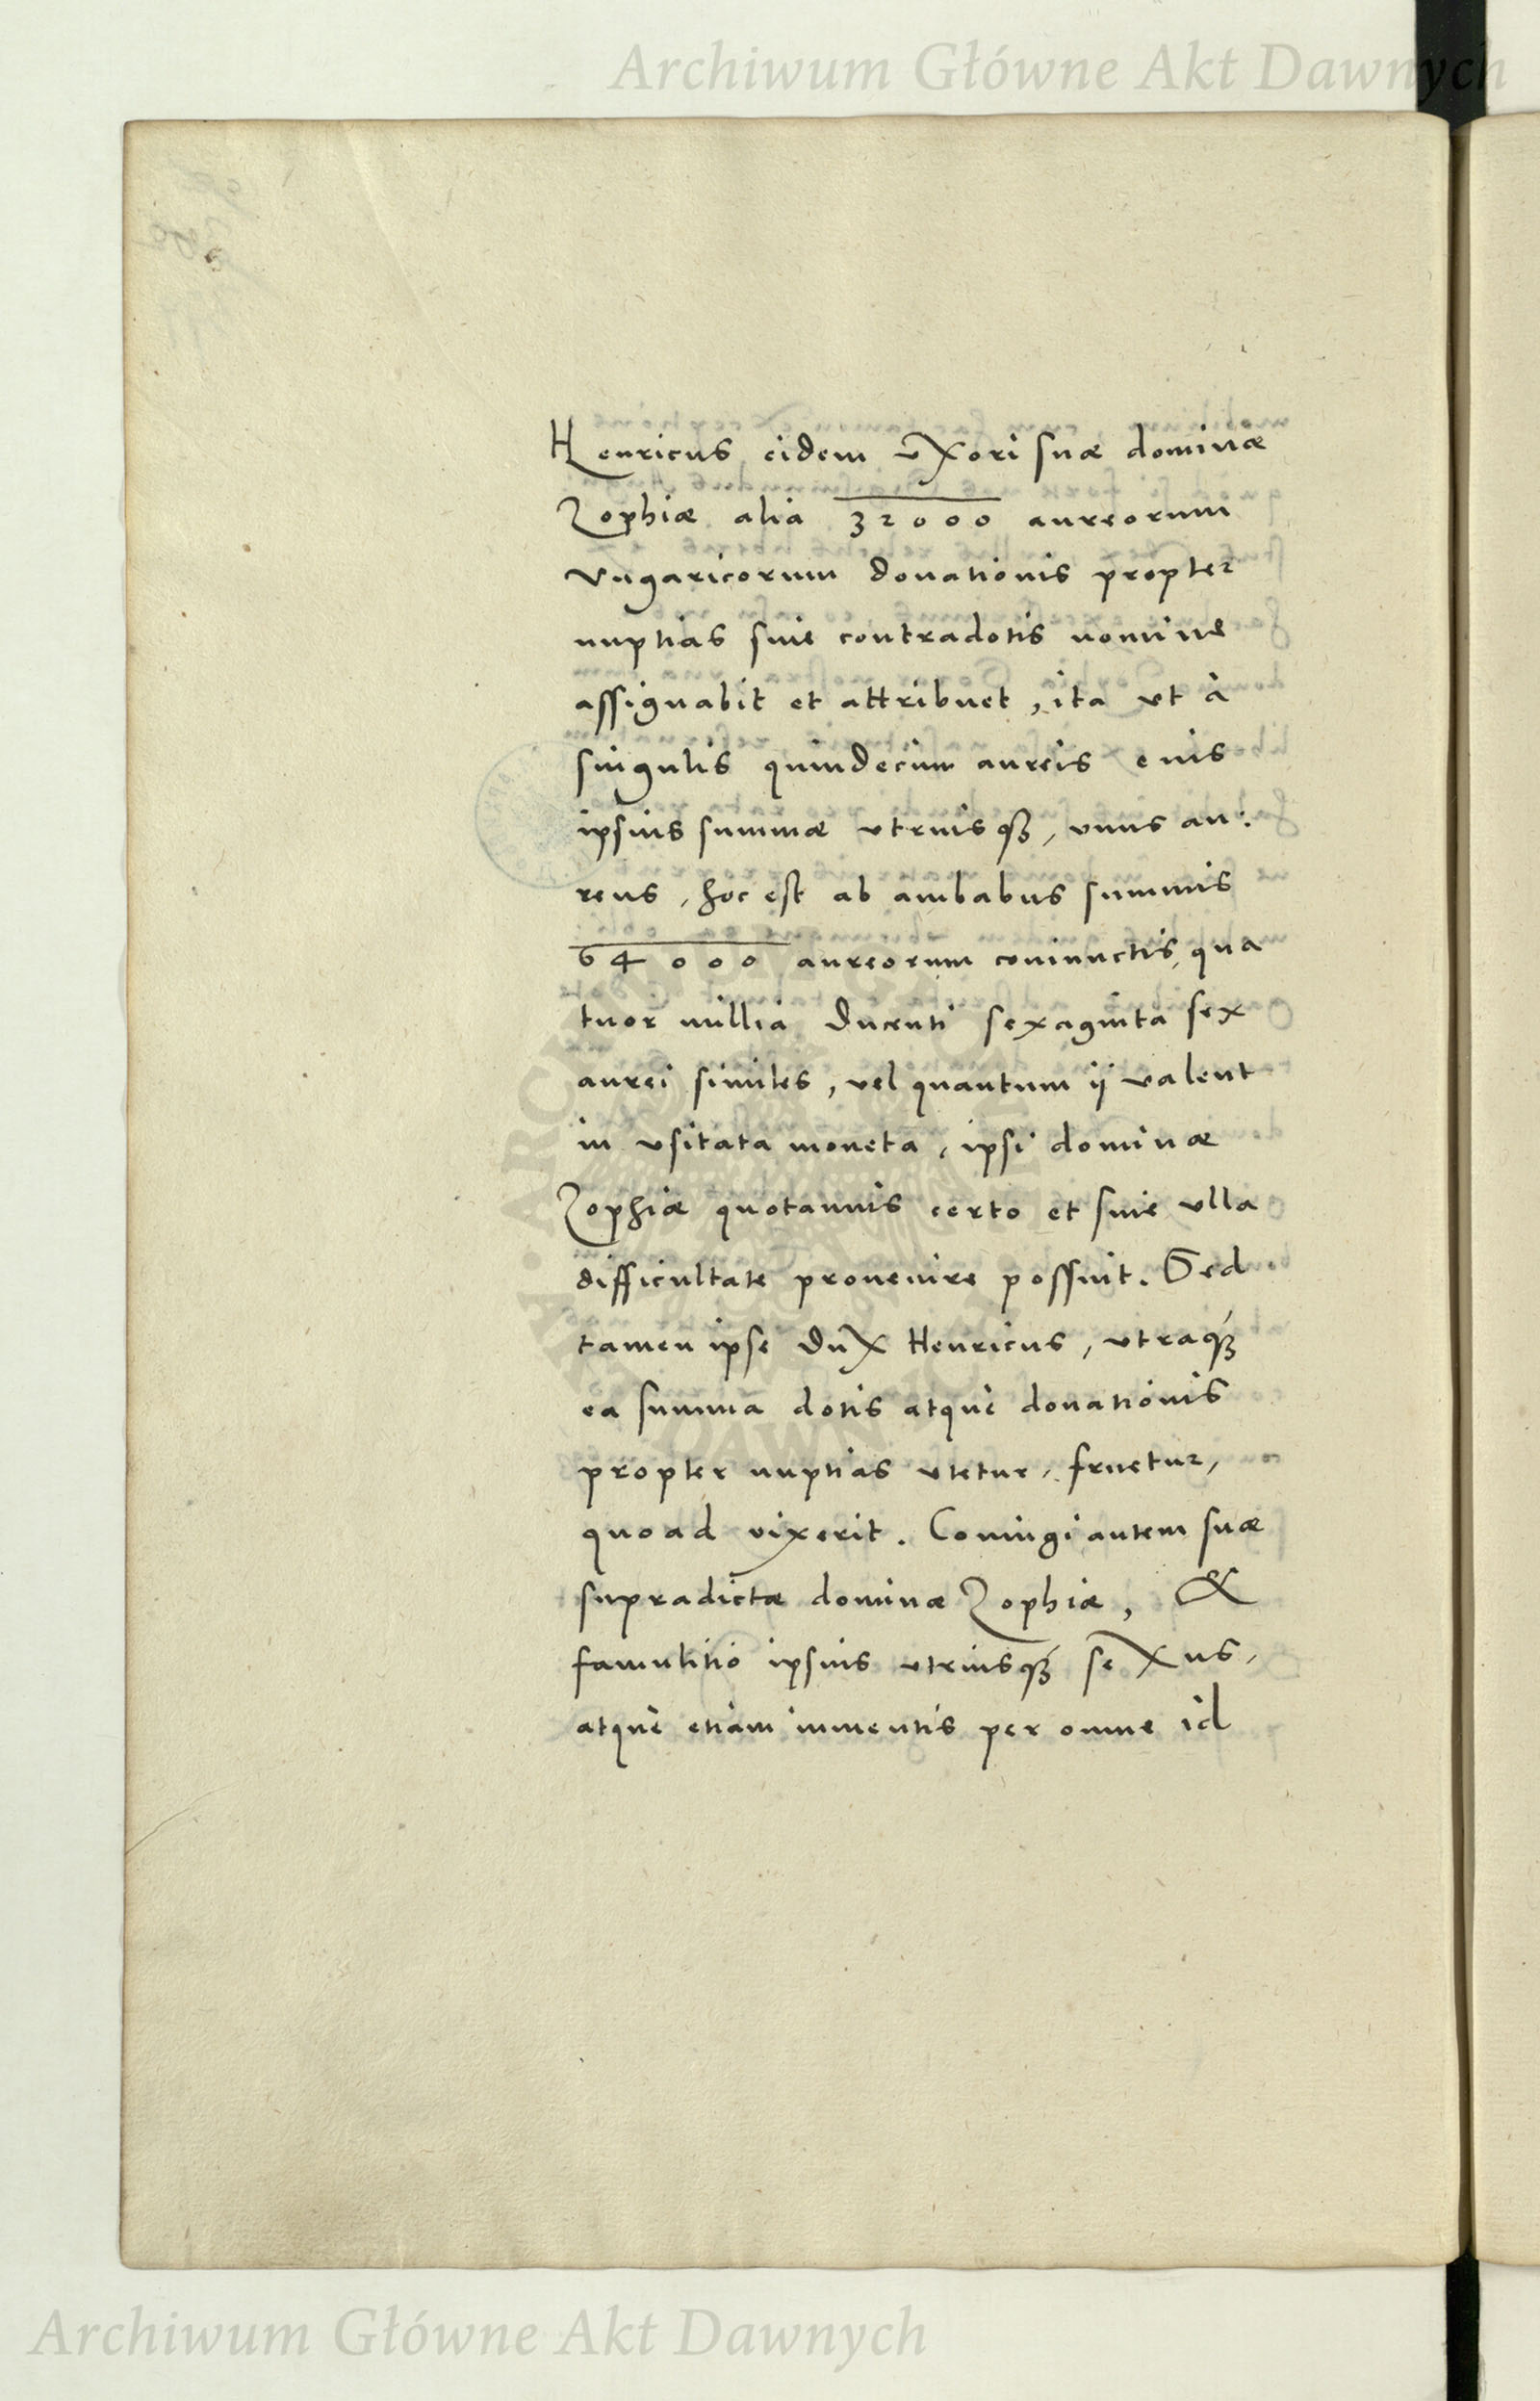 Archiwum Główne Akt Dawnych
Henricus eidem uxori suæ dominæ
Zophiæ alia 32000 aureorum
Vngaricorum donationis propter
nuptias siue contradotis nomine
assignabit et attribuet, ita vt à
singulis quindecim aureis euis
ipsius summæ vtriusqꝫ, vnus au:
reus, hoc est ab ambabus summis
64000 aureorum coniunctis, qua
tuor millia ducenti sexaginta sex
aurei similes, vel quantum ij valent
in vsitata moneta, ipsi dominæ
Zophiæ quotannis certo et sine vlla
difficultate prouenire possint. Sed
tamen ipse dux Henricus, vtraqꝫ
ea summa dotis atque donationis
propter nuptias vtetur, fruetur,
quoad vixerit. Coniugi autem suæ
supradictæ dominæ Zophiæ, &
famulitio ipsius vtriusqꝫ sexus,
atque etiam iumentis per omne id
Archiwum Główne Akt Dawnych